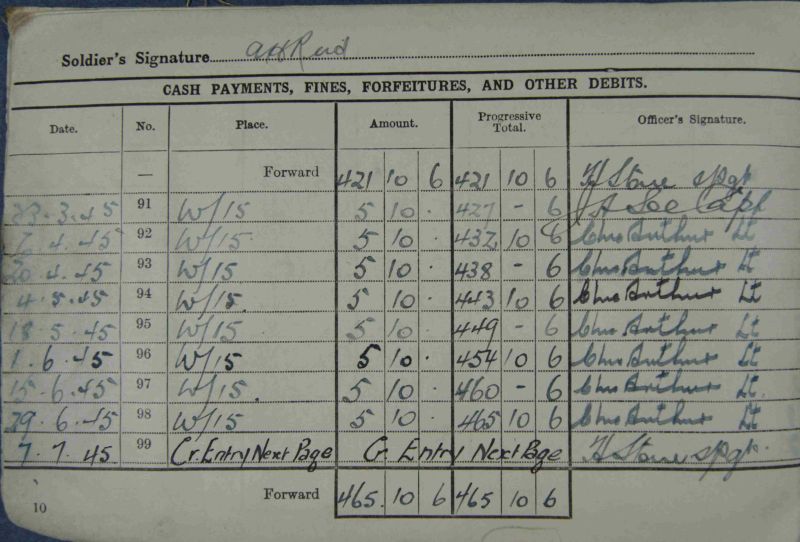 Soldier's Signature AH Reid
CASH PAYMENTS, FINES, FORFEITURES, AND OTHER DEBITS.
Date. No. Place. Amount. Progressive Total. Officer's Signature.
— Forward 421 10 6 421 10 6 H Stone S/Sgt
23.3.45 91 W/15 5 10 . 427 - 6 Capt
6.4.45 92 W/15 5 10 . 432 10 6 Chas Arthur Lt
20.4.45 93 W/15 5 10 . 438 - 6 Chas Arthur Lt
4.5.45 94 W/15 5 10 . 443 10 6 Chas Arthur Lt
18.5.45 95 W/15 5 10 . 449 - 6 Chas Arthur Lt
1.6.45 96 W/15 5 10 . 454 10 6 Chas Arthur Lt
15.6.45 97 W/15 5 10 . 460 - 6 Chas Arthur Lt
29.6.45 98 W/15 5 10 . 465 10 6 Chas Arthur Lt
7.7.45 99 Cr. Entry Next Page Cr. Entry Next Page H Stone S/Sgt
Forward 465 10 6 465 10 6
10